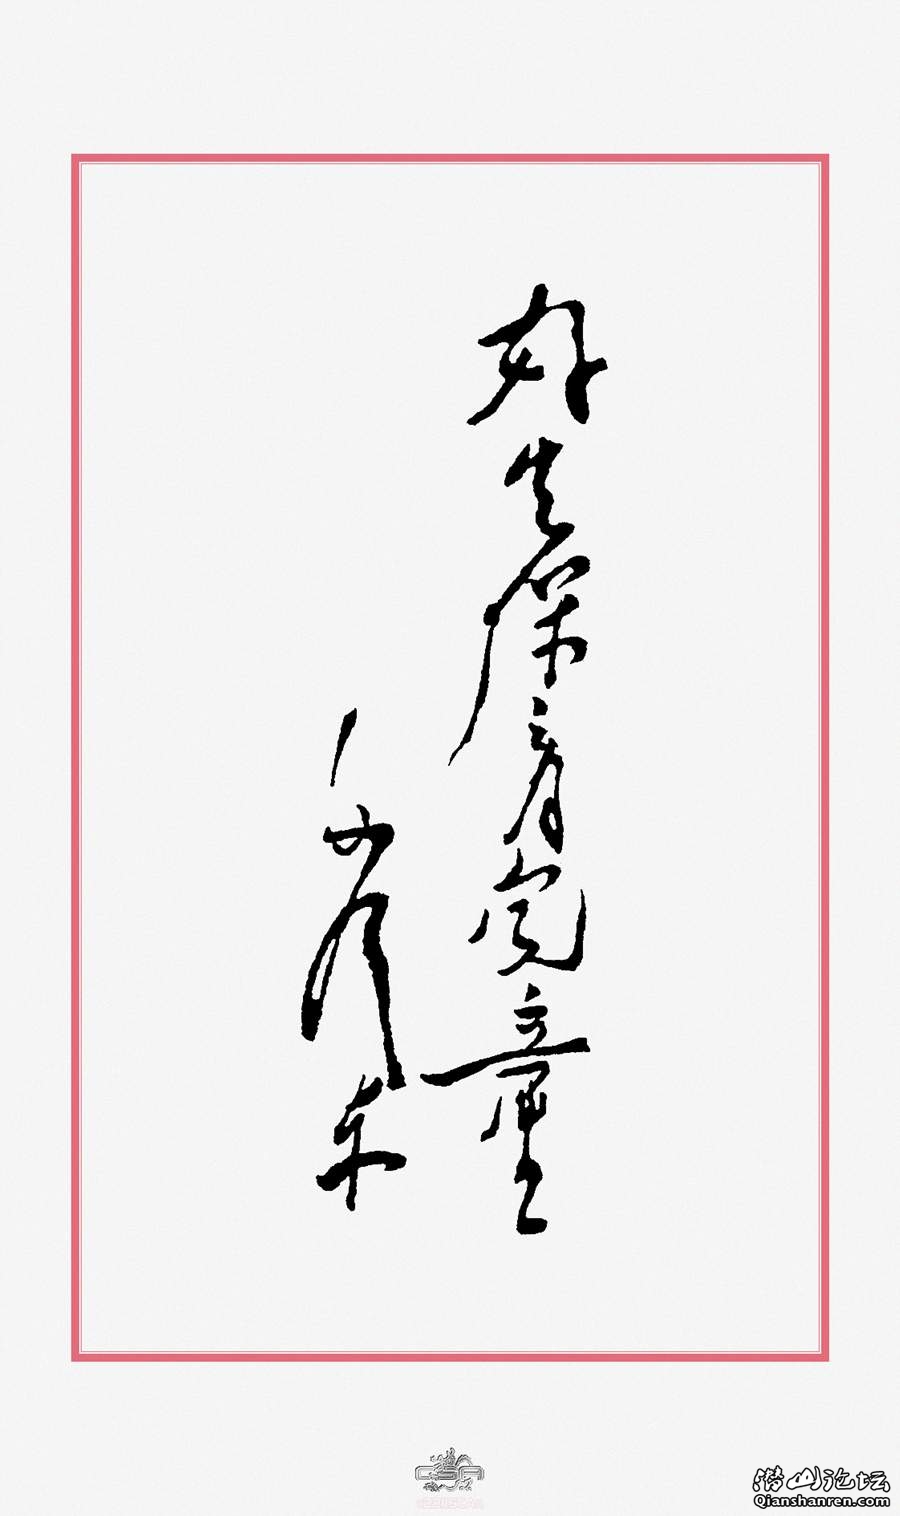 好生保育兒童
毛澤東
潜山论坛
Qianshanren.com